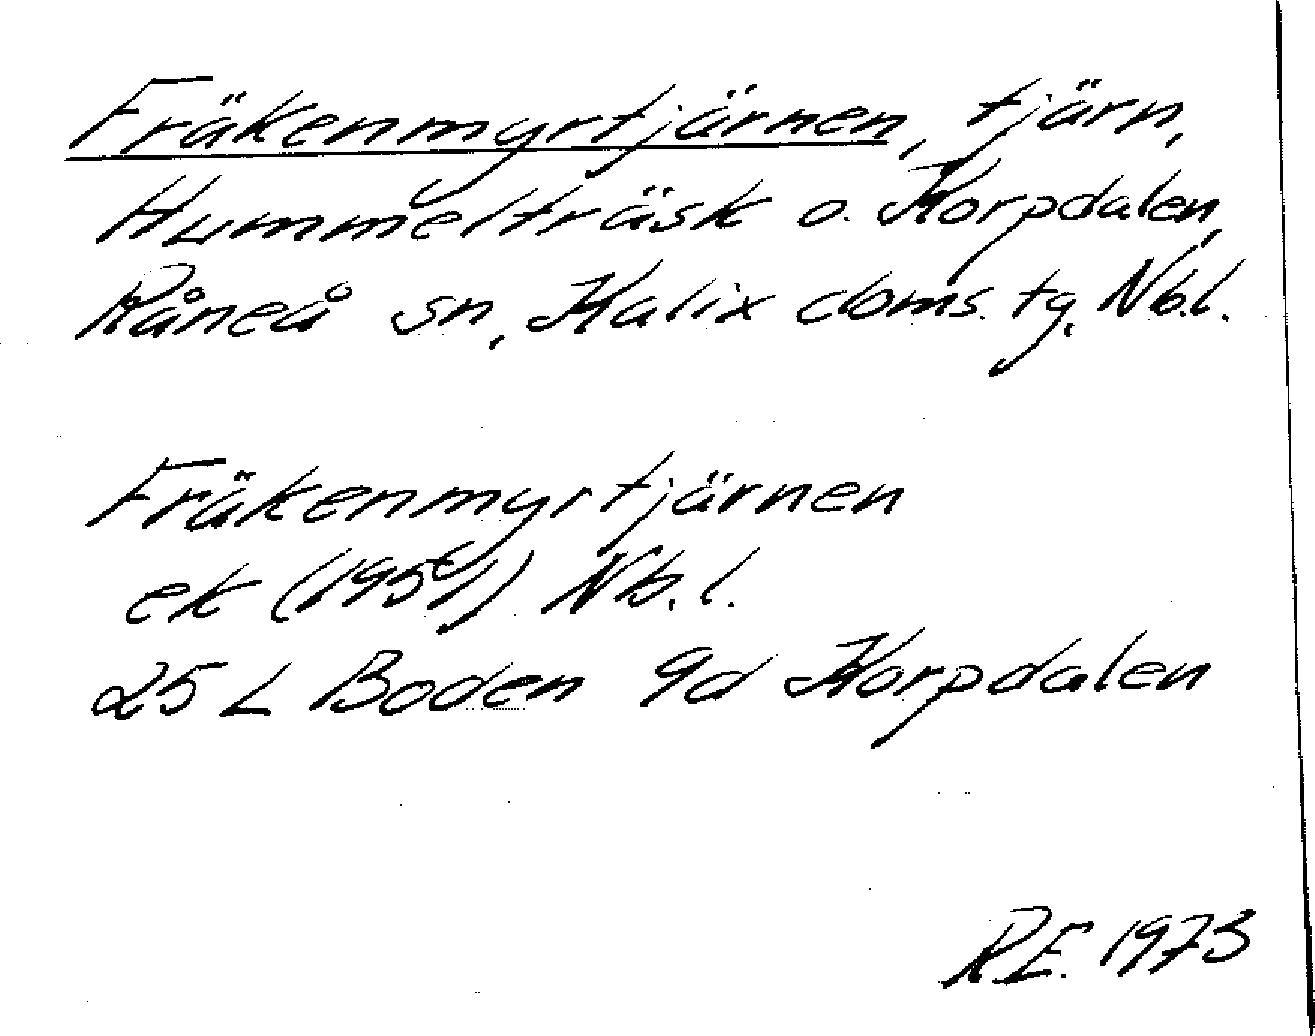 Fräkenmyrtjärnen, tjärn,
Hummelträsk o. Korpdalen,
Råneå sn, Kalix doms. tg, Nb.l.
Fräkenmyrtjärnen
ek (1959) Nb.l.
25 L Boden 9d Korpdalen
R.E. 1973